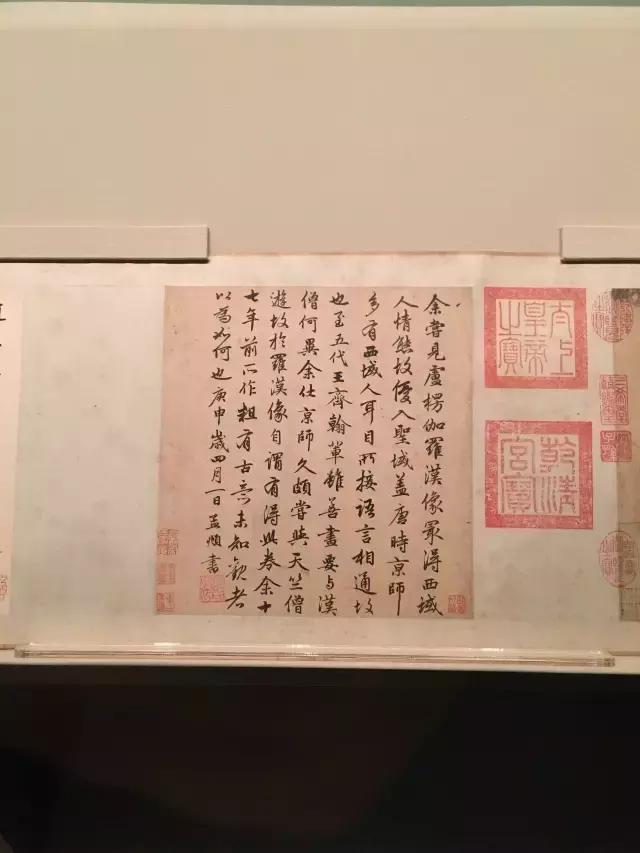 余嘗見盧楞伽羅漢像冣得西域
人情態故優入聖域盖唐時京師
多有西域人耳目所接語言相通故
也至五代王齊翰輩雖善畫要与漢
僧何異余仕京師久頗嘗與天竺僧
遊故於羅漢像自謂有得此卷余十
七年前所作粗有古意未知觀者
以為如何也庚申歲四月一日孟頫書
太上皇帝之寶
乾清宮寶